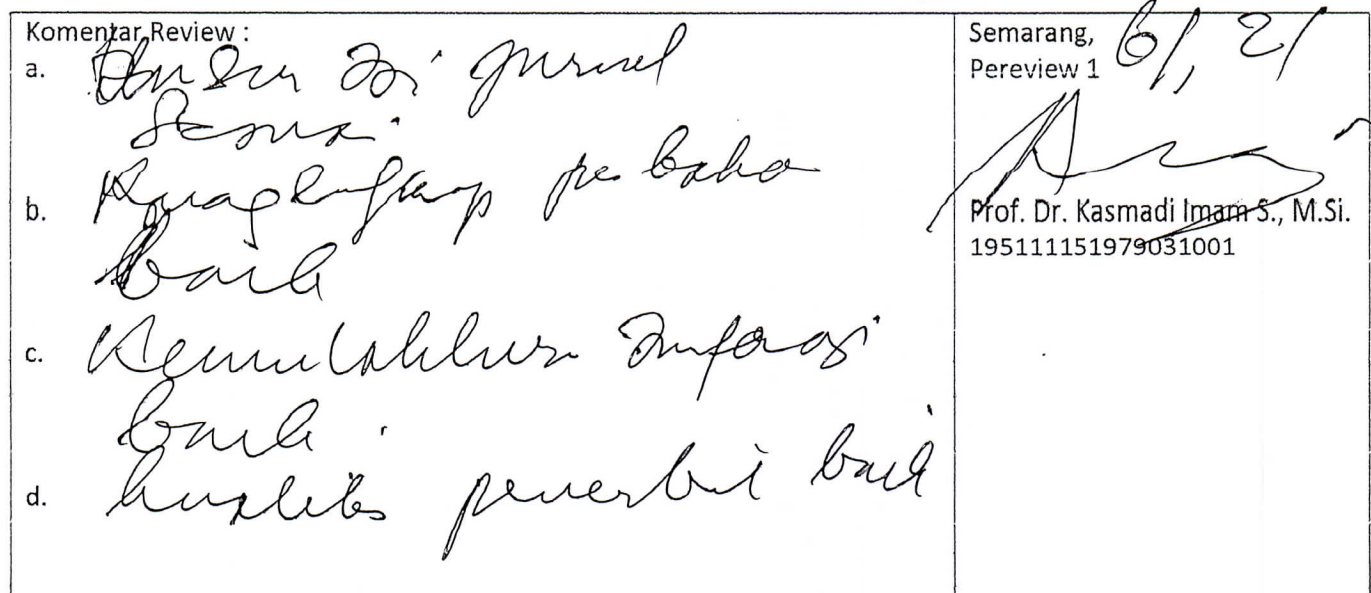 Komentar Review :
a. Unsur Isi jurnal
Sesuai
b. Ruang lingkup pe baha
baik
c. Kemutakhiran Infoasi
baik.
d. kualits penerbit baik
Semarang, 6/, 21
Pereview 1
Prof. Dr. Kasmadi Imam S., M.Si.
195111151979031001